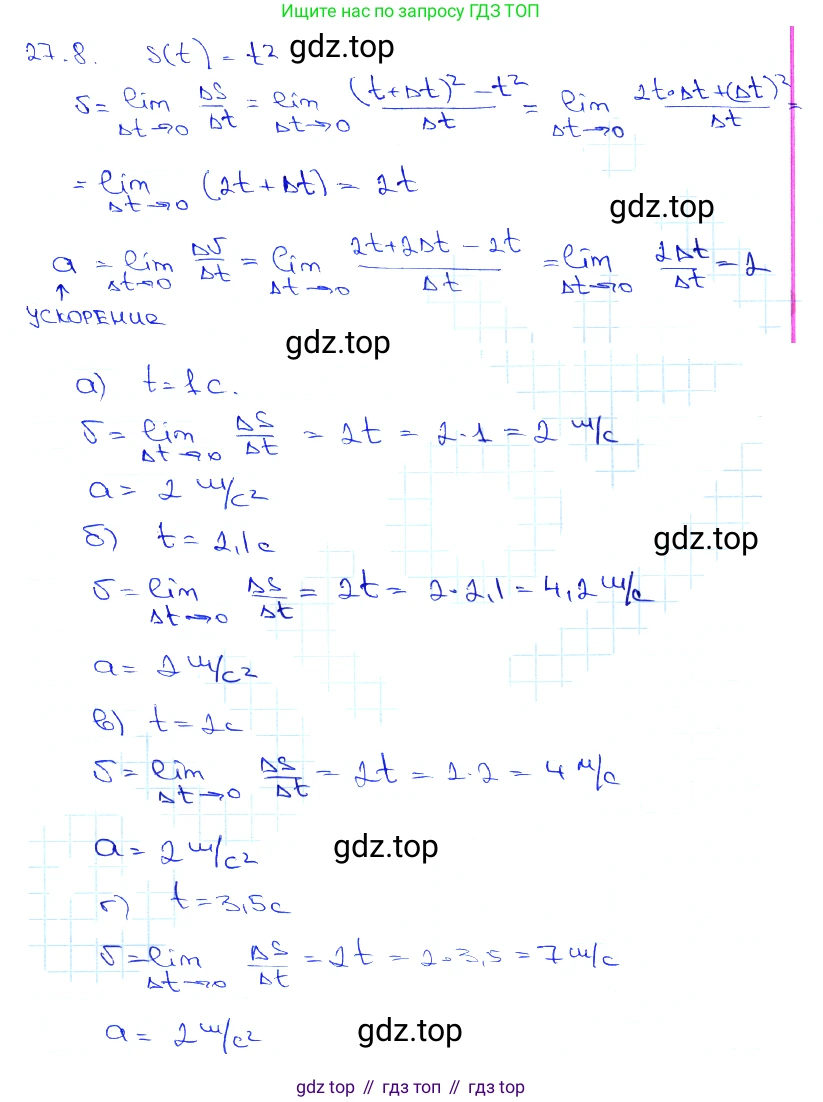 Ищите нас по запросу ГДЗ ТОП
27.8. s(t) = t² gdz.top
υ = lim Δt→0 ΔS/Δt = lim Δt→0 ((t+Δt)² − t²)/Δt = lim Δt→0 (2t·Δt+(Δt)²)/Δt =
= lim Δt→0 (2t+Δt) = 2t
gdz.top
a = lim Δt→0 Δυ/Δt = lim Δt→0 (2t+2Δt − 2t)/Δt = lim Δt→0 2Δt/Δt = 2
↑
УСКОРЕНИЕ
gdz.top
а) t = 1 с.
υ = lim Δt→0 ΔS/Δt = 2t = 2·1 = 2 м/с
a = 2 м/с²
б) t = 2,1 с
gdz.top
υ = lim Δt→0 ΔS/Δt = 2t = 2·2,1 = 4,2 м/с
a = 2 м/с²
в) t = 2с
υ = lim Δt→0 ΔS/Δt = 2t = 2·2 = 4 м/с
a = 2 м/с² gdz.top
г) t = 3,5с
υ = lim Δt→0 ΔS/Δt = 2t = 2·3,5 = 7 м/с
a = 2 м/с² gdz.top
gdz top // гдз топ // gdz top